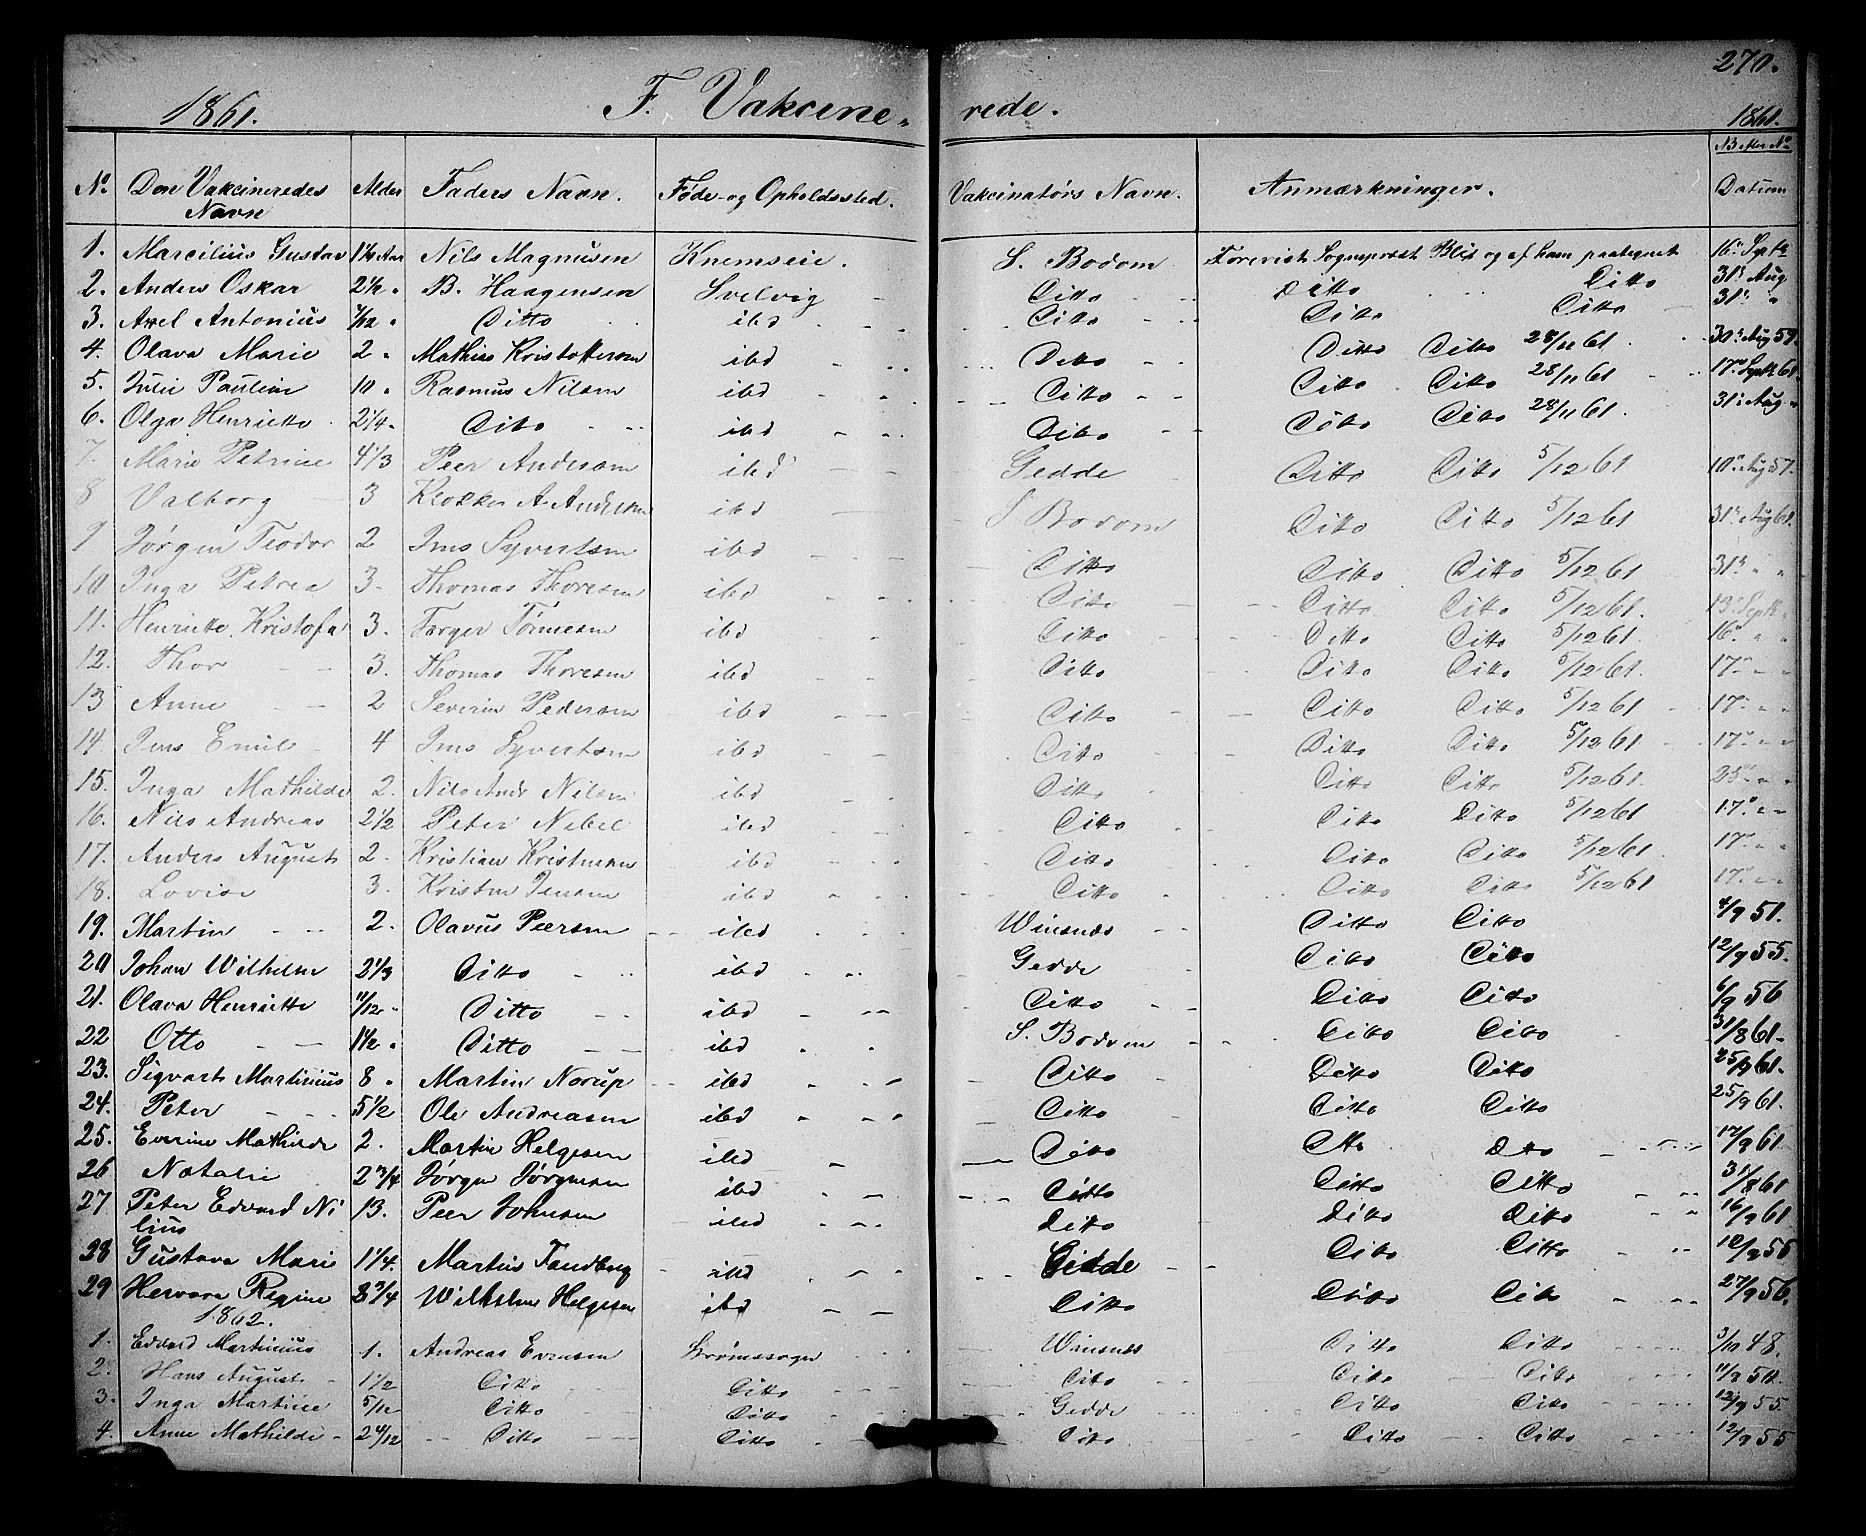 270.
1861. F. Vakcine- rede. 1861.
No Den Vakcineredes Navn Alder Faders Navn. Føde- og Opholdssted. Vakcinatørs Navn. Anmærkninger. Datum
1. Marcilius Gustav 1¼ Aar Nils Magnusen Knemseie. S. Bodom Forevist Sognepræst Blis og af ham paategnet 16de Septr
2. Anders Oskar 2½ " B. Haagensen Svelvig Ditto Ditto Ditto 31te Aug
3. Axel Antonius 7/12 " Ditto ibd Ditto Ditto Ditto 31te "
4. Olava Marie 2 " Mathias Kristoffersen ibd Ditto Ditto Ditto 28/11 61. 30te Aug 59.
5. Julie Pauline 10 " Rasmus Nilsen ibd Ditto Ditto Ditto 28/11 61 17de Septr 61.
6. Olga Henriette 2¼ " Ditto ibd Ditto Ditto Ditto 28/11 61. 31te Aug "
7. Marie Petrine 4⅓ Peer Andersen ibd Gedde Ditto Ditto 5/12 61 10de Aug 57.
8 Valborg 3 Klokker A. Andersen ibd S Bodom Ditto Ditto 5/12 61 31te Aug 61.
9 Jørgen Teodor 2 Jens Syvertsen ibd Ditto Ditto Ditto 5/12 61 31te " "
10 Inga Petrea 3. Thomas Thoresen ibd Ditto Ditto Ditto 5/12 61. 13de Septr "
11. Henriette Kristofa 3. Torger Tønnesen ibd Ditto Ditto Ditto 5/12 61. 16de " "
12. Thor 3. Thomas Thoresen ibd Ditto Ditto Ditto 5/12 61. 17de " "
13 Anne 2 Severin Pedersen ibd Ditto Ditto Ditto 5/12 61 17de " "
14. Jens Emil 4 Jens Syvertsen ibd Ditto Ditto Ditto 5/12 61 17de " "
15. Inga Mathilde 2. Nils Andr Nilsen ibd Ditto Ditto Ditto 5/12 61. 25de " "
16. Nils Andreas 2½ Peter Nebel ibd Ditto Ditto Ditto 5/12 61 17de " "
17. Anders August 2. Kristian Kristensen ibd Ditto Ditto Ditto 5/12 61. 17de " "
18. Lovise 3. Kristen Jensen ibd Ditto Ditto Ditto 5/12 61 17de " "
19. Martin 2. Olavus Peersen ibd Winsnes Ditto Ditto 4/9 51.
20 Johan Wilhelm 2⅓ Ditto ibd Gedde Ditto Ditto 12/9 55.
21. Olava Henriette 11/12 " Ditto ibd Ditto Ditto Ditto 6/9 56
22 Otto 1½ " Ditto ibd S. Bodom Ditto Ditto 31/8 61.
23. Sigvart Martinius 8 " Martin Norup ibd Ditto Ditto Ditto 25/9 61.
24. Peter 5½ Ole Andreasen ibd Ditto Ditto Ditto 25/9 61.
25. Everine Mathilde 2. Martin Helgesen ibd Ditto Dtto Dtto 17/9 61
26 Natalie 2¾ Jørgen Jørgensen ibd Ditto Ditto Ditto 31/8 61
27 Peter Edvard Ni 13. Peer Johnsen ibd Ditto Ditto Ditto 16/9 61
lius
28 Gustava Marie 1¼. Martin Tandberg ibd Gedde Ditto Ditto 12/9 55
29 Hervara Regine 8¾ Wilhelm Helgesen ibd Ditto Ditto Ditto 27/9 56.
1862.
1. Edvard Martinius 1. Andreas Evensen Strømssogn Winsnes Ditto Ditto 3/10 48.
2. Hans August 1½ Ditto Ditto Ditto Ditto Ditto 11/9 50.
3. Inga Martine 5/12 Ditto Ditto Gedde Ditto Ditto 12/9 55
4. Anne Mathilde 2 4/12 Ditto Ditto Ditto Ditto Ditto 12/9 55